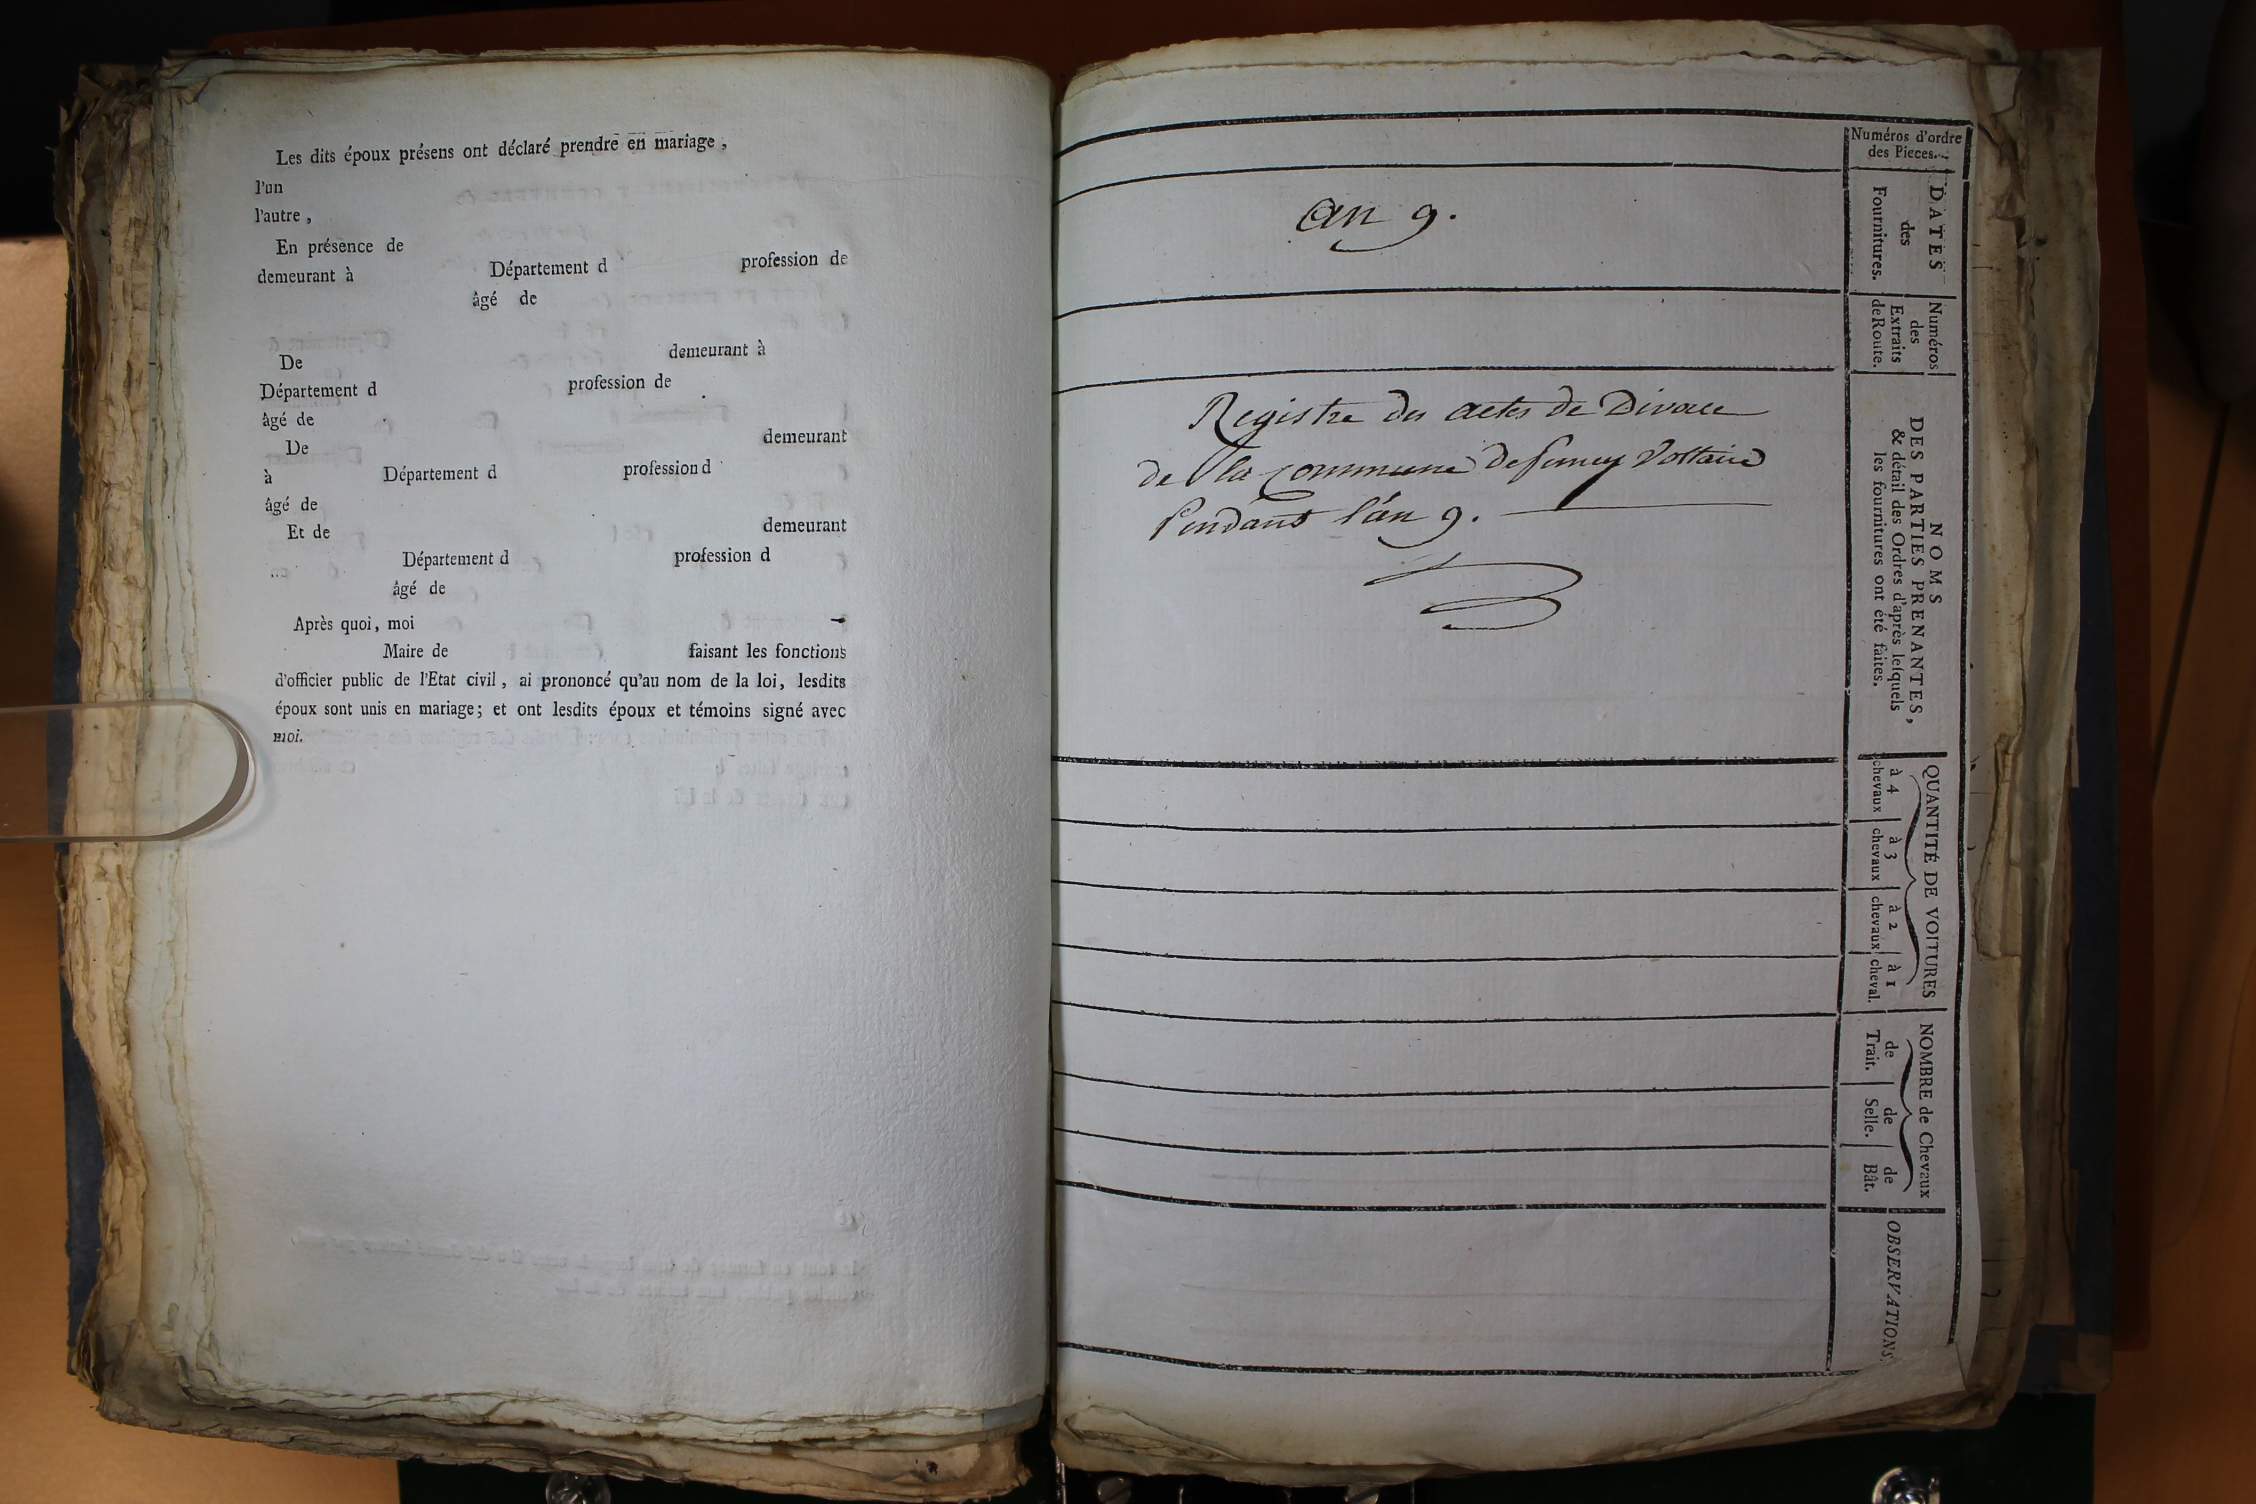 Les dits époux présens ont déclaré prendre en mariage ,
l'un
l'autre ,
En présence de
demeurant à Département d profession de
âgé de
De demeurant à
Département d profession de
âgé de
De demeurant
à Département d profession d
âgé de
Et de demeurant
Département d profession d
âgé de
Après quoi, moi
Maire de faisant les fonctions
d'officier public de l'Etat civil , ai prononcé qu'au nom de la loi, lesdits
époux sont unis en mariage; et ont lesdits époux et témoins signé avec
moi.
an 9.
Registre des actes de Divorce
de la commune de ferney Voltaire
Pendant l'an 9.
Numéros d'ordre
des Pieces.
DATES
des
Fournitures.
Numéros
des
Extraits
de Route.
NOMS
DES PARTIES PRENANTES,
& détail des Ordres d'après lesquels
les fournitures ont été faites.
QUANTITÉ DE VOITURES
à 4
chevaux
à 3
chevaux
à 2
chevaux
à 1
cheval.
NOMBRE de Chevaux
de
Trait.
de
Selle.
de
Bât.
OBSERVATIONS.